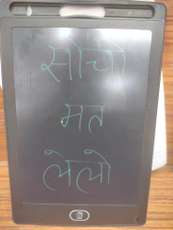 सोचो
मत
लेलो